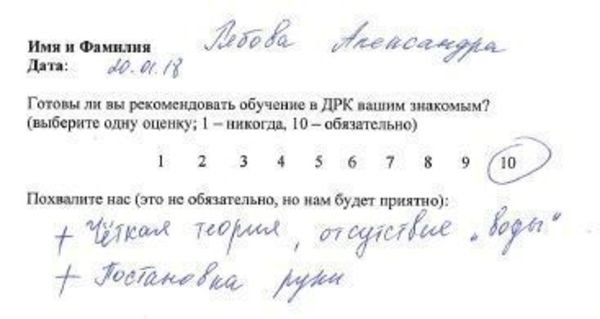 Имя и Фамилия Рябова Александра
Дата: 20.01.18
Готовы ли вы рекомендовать обучение в ДРК вашим знакомым?
(выберите одну оценку; 1 – никогда, 10 – обязательно)
1 2 3 4 5 6 7 8 9 10
Похвалите нас (это не обязательно, но нам будет приятно):
+ Чёткая теория, отсутствие „воды"
+ Постановка руки